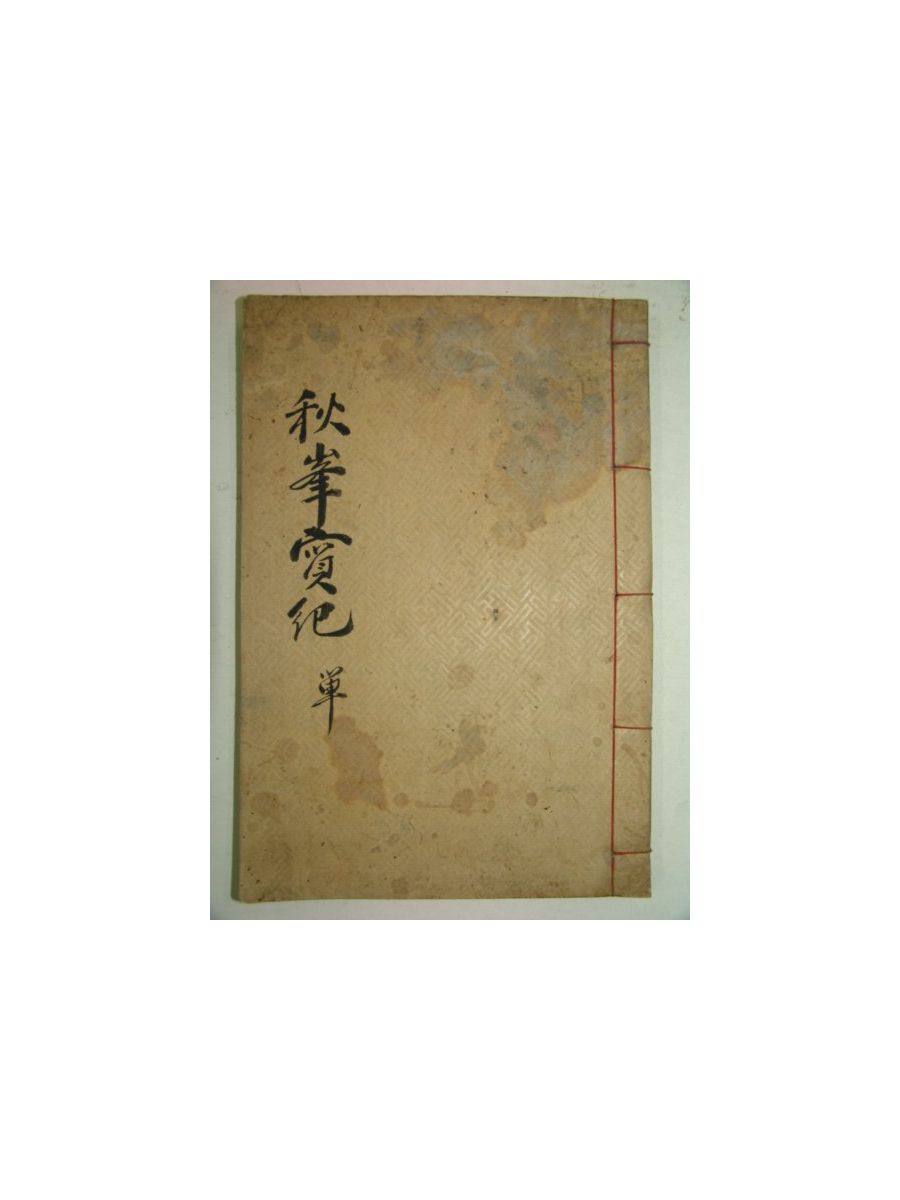 秋峯實紀
単